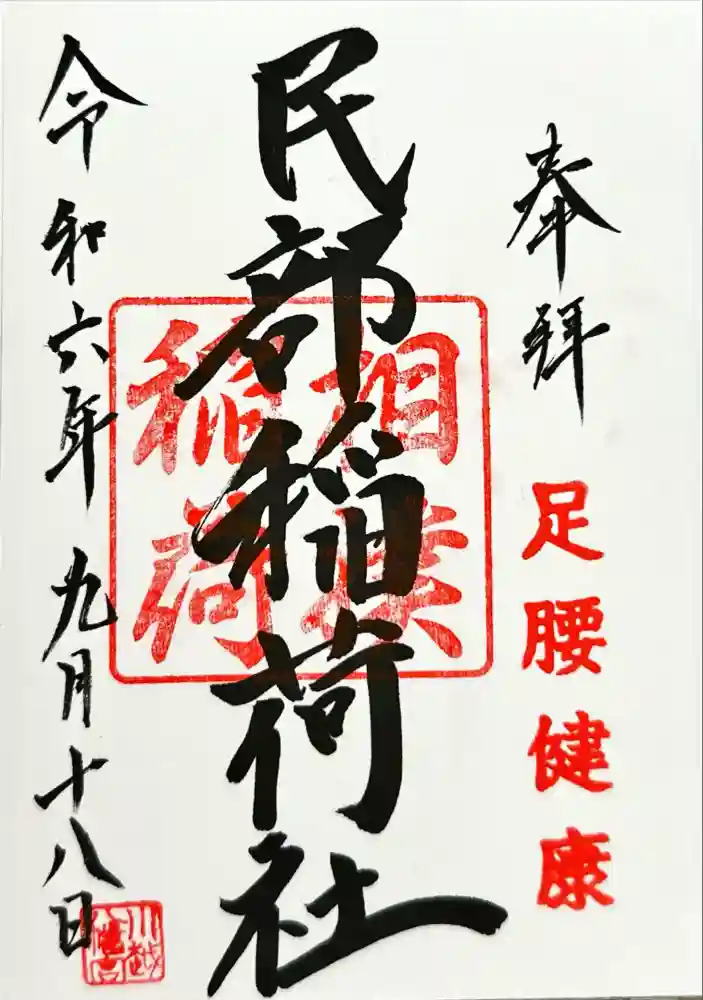 奉拝
足腰健康
民部稲荷社
相撲
稲荷
令和六年九月十八日
川越